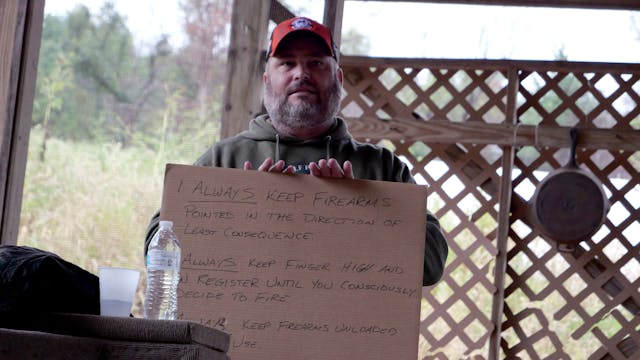 1 ALWAYS KEEP FIREARMS
POINTED IN THE DIRECTION OF
LEAST CONSEQUENCE.
ALWAYS KEEP FINGER HIGH AND
REGISTER UNTIL YOU CONSCIOUSLY
DECIDE TO FIRE
KEEP FIREARMS UNLOADED
USE